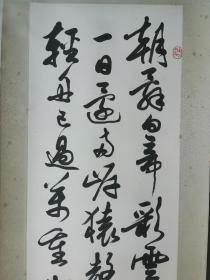 朝辞白帝彩雲
一日還兩岸猿聲
輕舟已過萬重